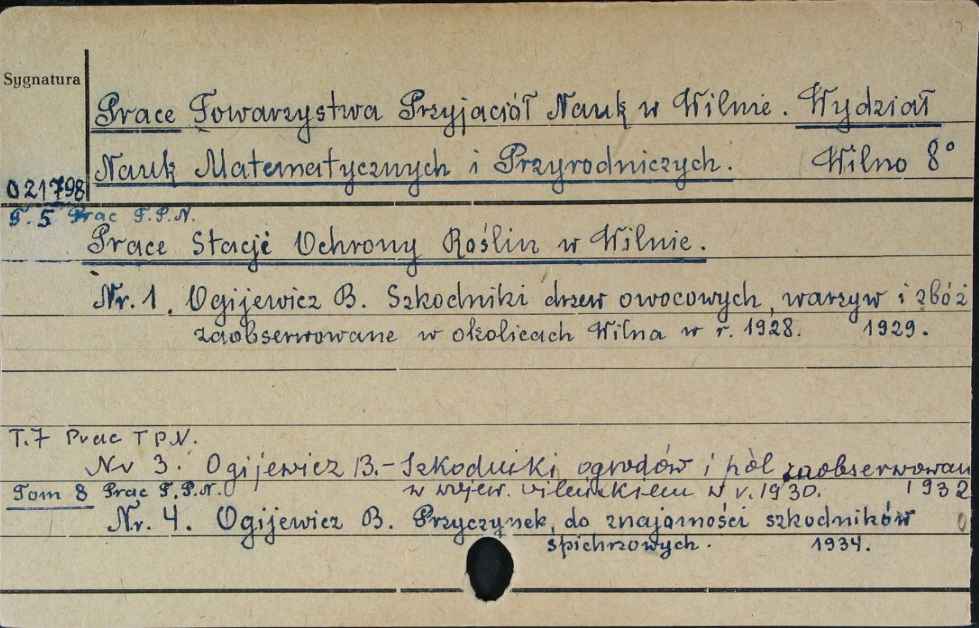 Sygnatura
Prace Towarzystwa Przyjaciół Nauk w Wilnie. Wydział
Nauk Matematycznych i Przyrodniczych. Wilno 8°
021798
T. 5 Prac T.P.N.
Prace Stacji Ochrony Roślin w Wilnie.
Nr. 1. Ogijewicz B. Szkodniki drzew owocowych, warzyw i zbóż
zaobserwowane w okolicach Wilna w r. 1928. 1929.
T.7 Prac T P.N.
Nr 3. Ogijewicz B.- Szkodniki ogrodów i pól zaobserwowan
Tom 8 Prac T.P.N. w wojew. wileńskiem w r. 1930. 1932
Nr. 4. Ogijewicz B. Przyczynek do znajomości szkodników
śpichrzowych. 1934.